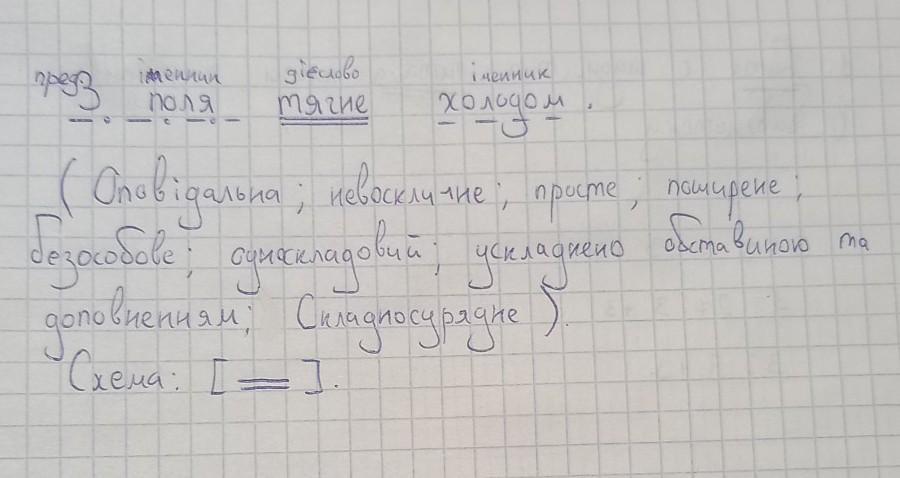 пред іменник дієслово іменник
З поля тягне холодом.
(Оповідальна; невоскличне; просте; поширене;
безособове; односкладовий; ускладнено обставиною та
доповненням; Складносурядне).
Схема: [ ═ ].